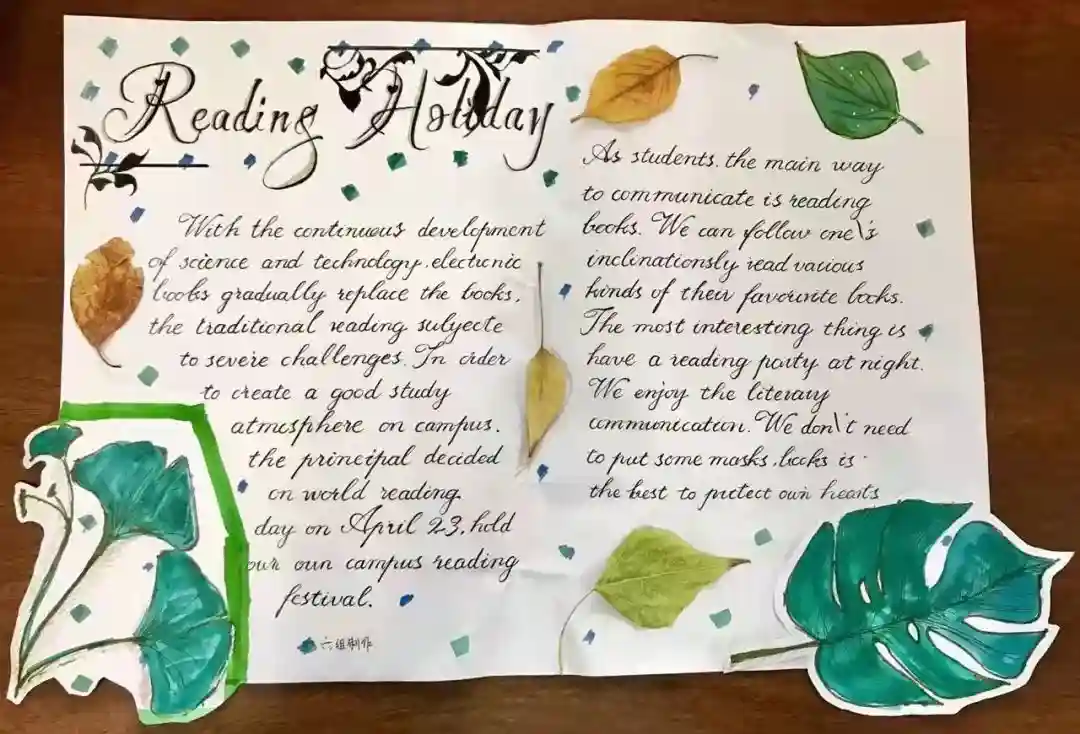 Reading Holiday
With the continuous development
of science and technology, electronic
books gradually replace the books,
the traditional reading subjecte
to severe challenges. In order
to create a good study
atmosphere on campus.
the principal decided
on world reading
day on April 23, hold
our own campus reading
festival.
六组制作
As students, the main way
to communicate is reading
books. We can follow one\'s
inclinationsly read various
kinds of their favourite books.
The most interesting thing is
have a reading party at night.
We enjoy the literary
communication. We don\'t need
to put some masks, books is
the best to protect own hearts